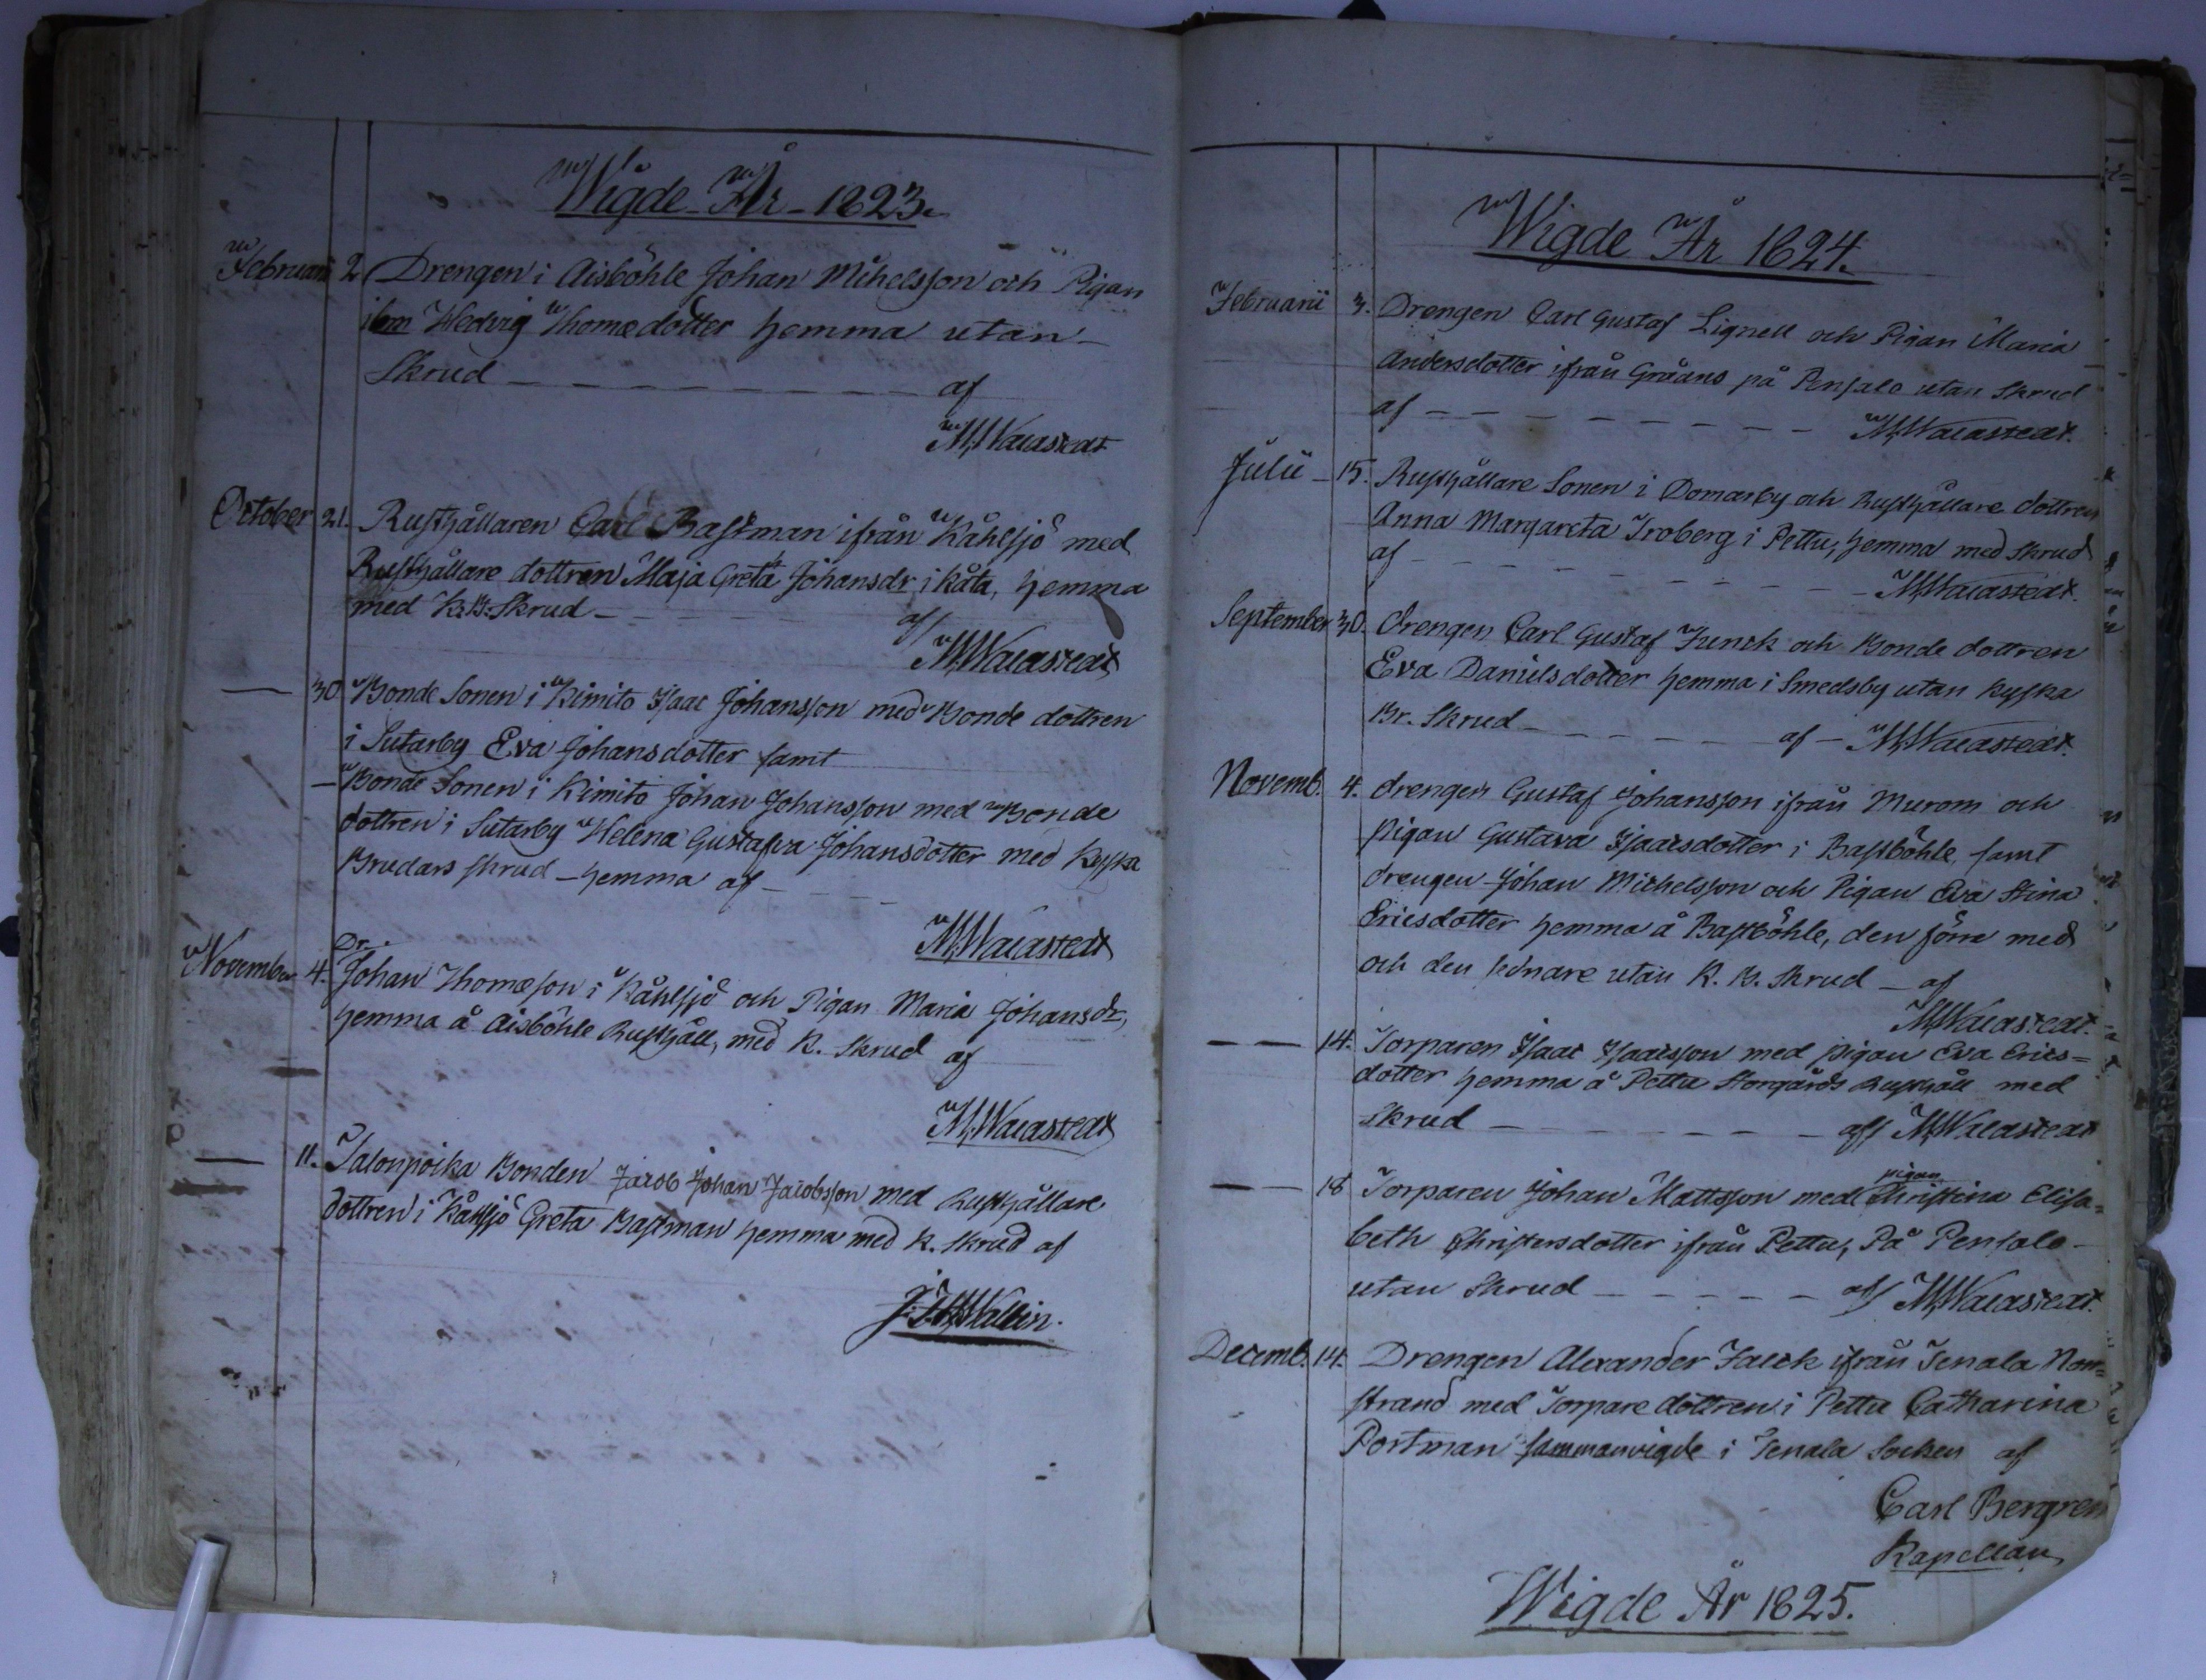 Wigde År 1823.
Februarii 2 Drengen i Aisböhle Johan Mihelsson och Pigan
ibm Hedvig Thomædotter hemma utan
Skrud — — — — — — — af
M. Walastedt
October 21. Rusthållaren Carl Bastman ifrån Kåhlsjö med
Rusthållare dottren Maja Greta Johansdr i Kåta, hemma
med K. B. Skrud — — — — — af
M. Walastedt
— 30 Bonde Sonen i Kimito Isaac Johansson med Bonde dottren
i Sutarby Eva Johansdotter samt
— Bonde Sonen i Kimito Johan Johansson med Bonde
dottren i Sutarby Helena Gustafva Johansdotter med Kyska
Brudars skrud – hemma af — — —
M. Walastedt
November 4. Dr. Johan Thomæson i Kåhlsjö och Pigan Maria Johansdr,
hemma å Aisböhle Rusthåll, med K. Skrud af
M. Walastedt
— 11. Talonpoika Bonden Jacob Johan Jacobsson med Rusthållare
dottren i Kåhlsjö Greta Bastman hemma med K. skrud af
Wallin.
Wigde År 1824.
Februarii 3. Drengen Carl Gustaf Lignell och Pigan Maria
Andersdotter ifrån Gråans på Pensalo utan Skrud
af — — — — — — — — M. Walastedt.
Julii — 15. Rusthållare Sonen i Domarby och Rusthållare dottren
Anna Margareta Troberg i Pettu, hemma med skrud
af — — — — — — — — M. Walastedt.
September 30. drengen Carl Gustaf Funck och Bonde dottren
Eva Danielsdotter hemma i Smedsby utan kyska
Br. Skrud — — — — — af — M. Walastedt.
Novemb. 4. drengen Gustaf Johansson ifrån Murom och
pigan Gustava Isaacsdotter i Bastböhle, samt
drengen Johan Michelsson och Pigan Eva Stina
Ericsdotter hemma å Bastböhle, den förre med
och den sednare utan K. B. Skrud — af
M. Walastedt.
— — 14. Torparen Isaac Isaacsson med pigan Eva Erics=
dotter hemma å Pettu Storgårds Rusthåll med
Skrud — — — — — — — af M. Walastedt
— — 18 Torparen Johan Mattsson med pigan Christina Elisa=
beth Christersdotter ifrån Pettu, På Pensalo
utan Skrud — — — — — af M. Walastedt.
Decemb. 14. Drengen Alexander Falck ifrån Tenala Norr=
strand med Torpare dottren i Pettu Catharina
Portman sammanvigde i Tenala Socken af
Carl Bergren
Kapellan
Wigde År 1825.